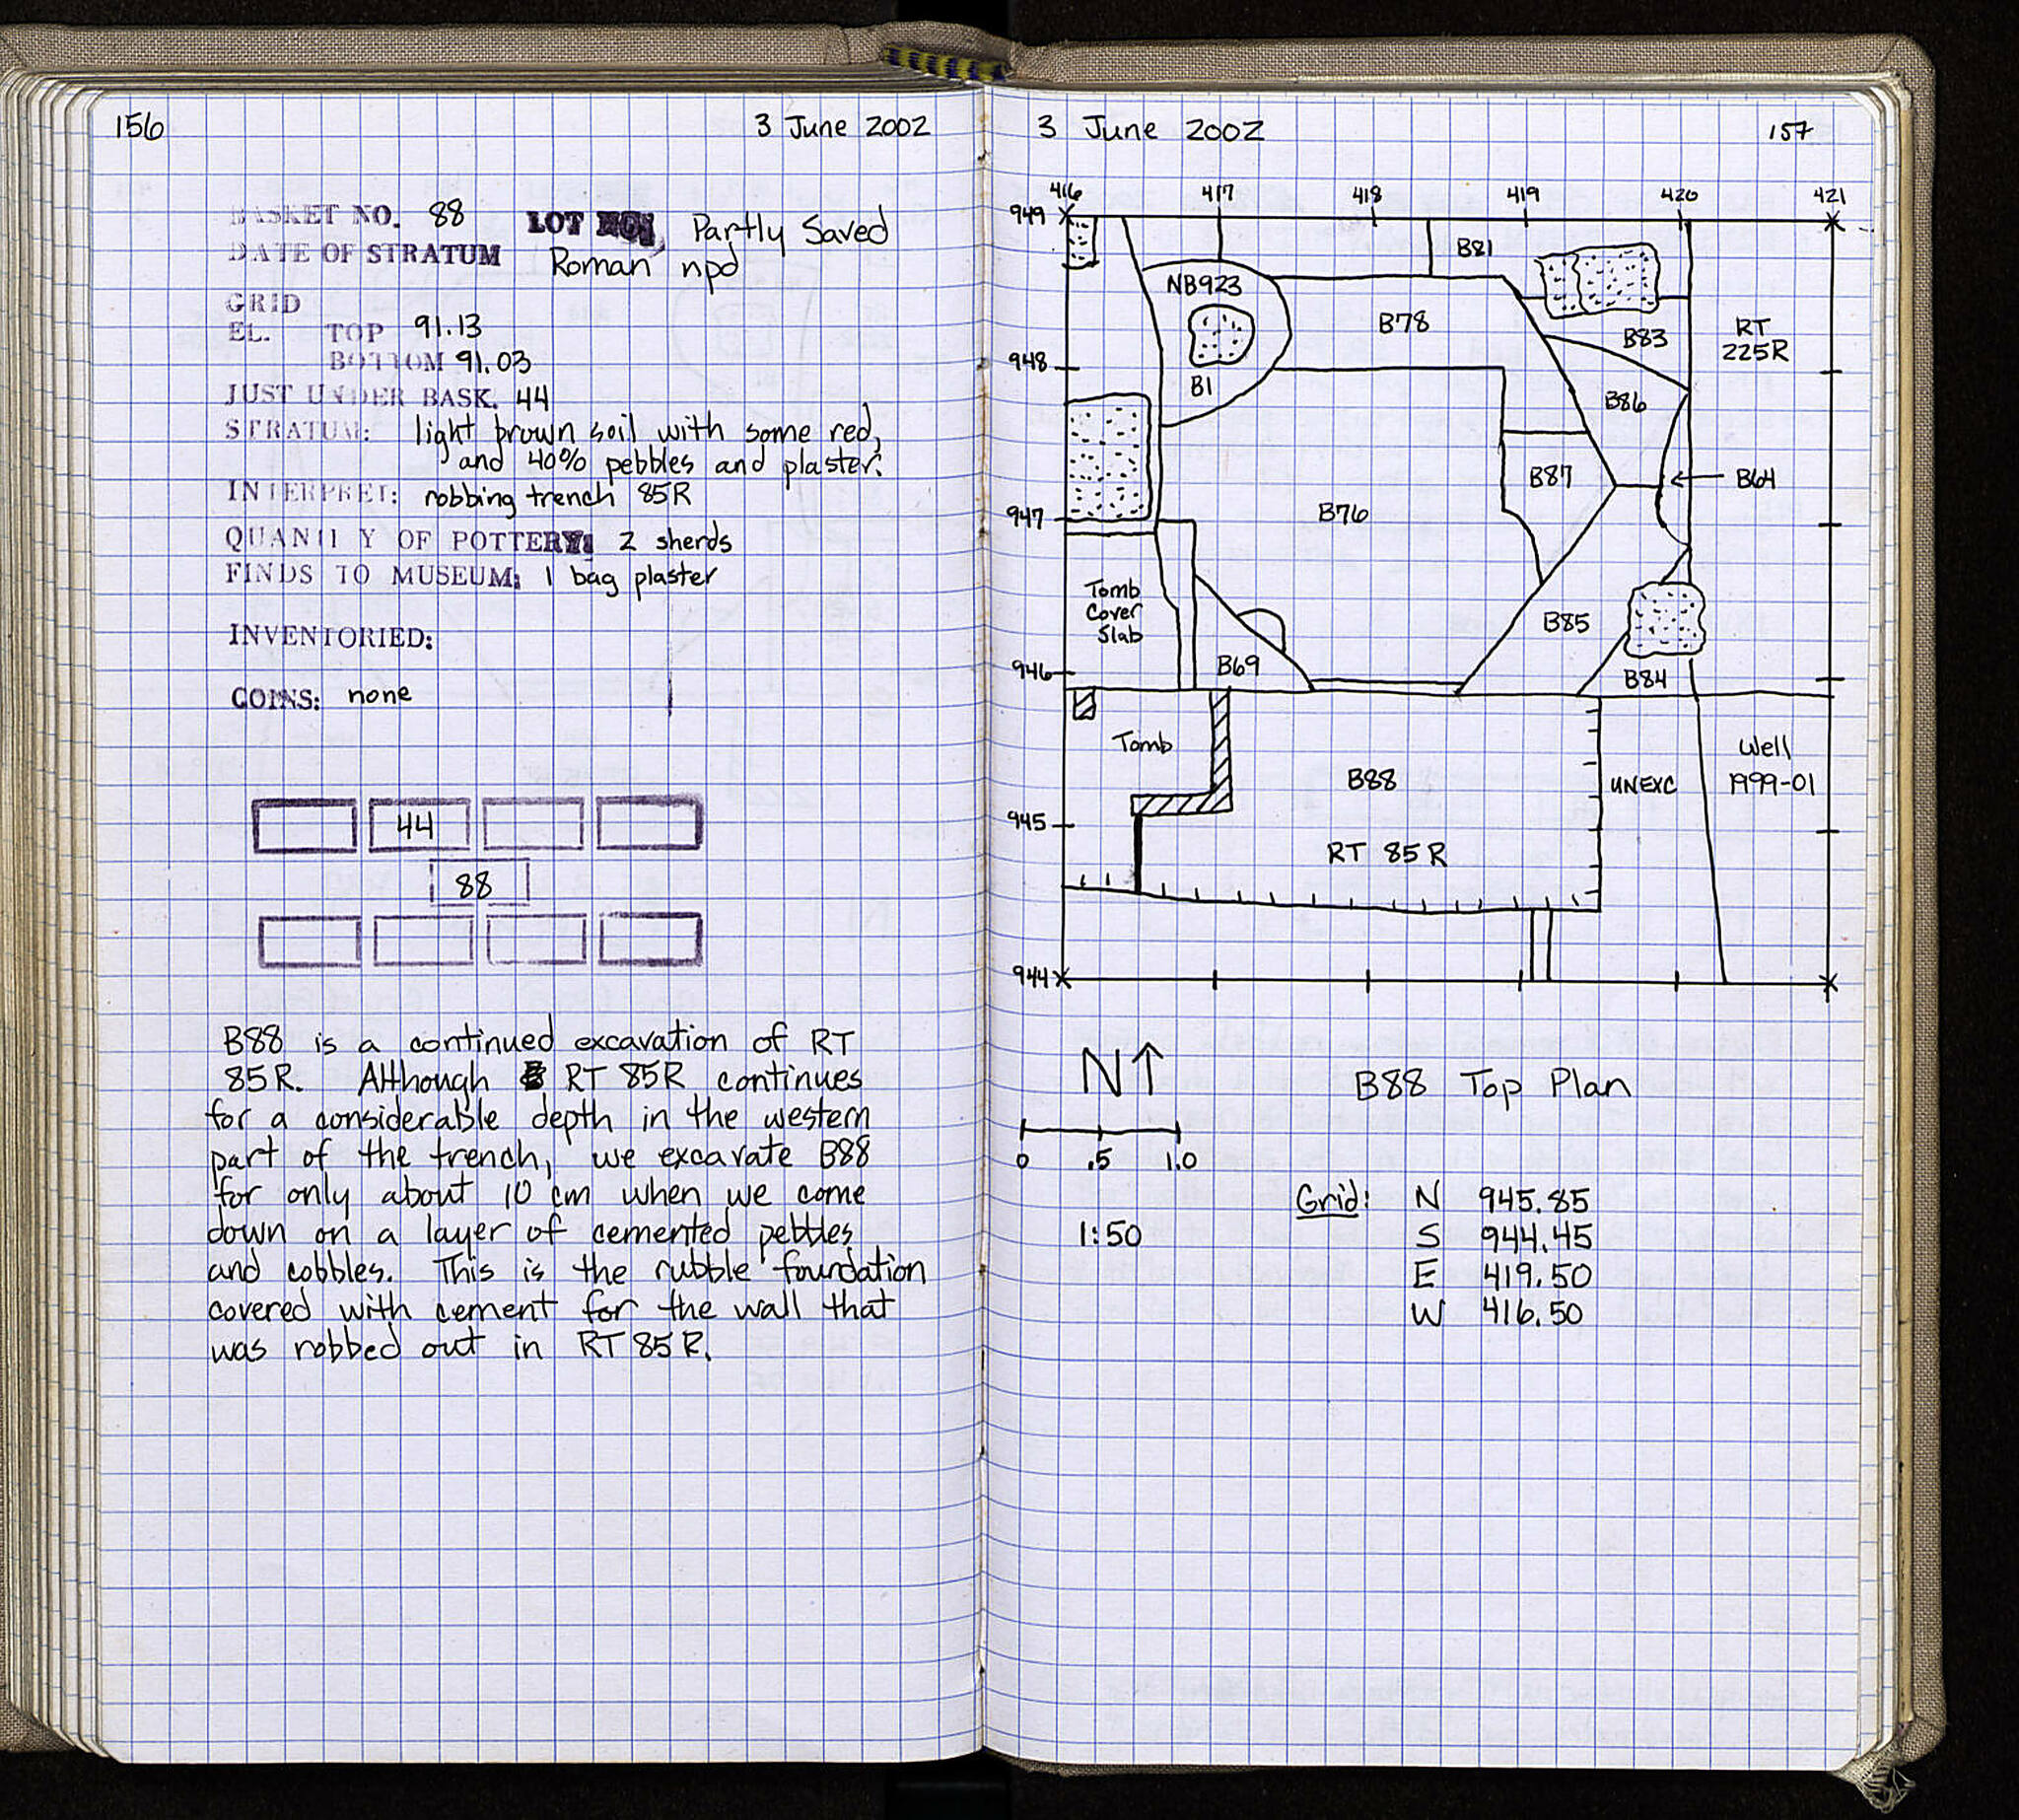 156
3 June 2002
BASKET NO. 88 LOT NO. Partly Saved
DATE OF STRATUM Roman npd
GRID
EL. TOP 91.13
BOTTOM 91.03
JUST UNDER BASK. 44
STRATUM: light brown soil with some red,
and 40% pebbles and plaster.
INTERPRET: robbing trench 85R
QUANTITY OF POTTERY: 2 sherds
FINDS TO MUSEUM: 1 bag plaster
INVENTORIED:
COINS: none
44
88
B88 is a continued excavation of RT
85R. Although RT 85R continues
for a considerable depth in the western
part of the trench, we excavate B88
for only about 10 cm when we come
down on a layer of cemented pebbles
and cobbles. This is the rubble foundation
covered with cement for the wall that
was robbed out in RT 85R.
3 June 2002
157
416 417 418 419 420 421
949
B81
NB923
B78
B83
RT
225R
948
B1
B86
B87
B64
947
B76
Tomb
Cover
Slab
B85
946
B69
B84
Tomb
B88
UNEXC
Well
1999-01
945
RT 85R
944
N↑
B88 Top Plan
0 .5 1.0
Grid: N 945.85
1:50
S 944.45
E 419.50
W 416.50